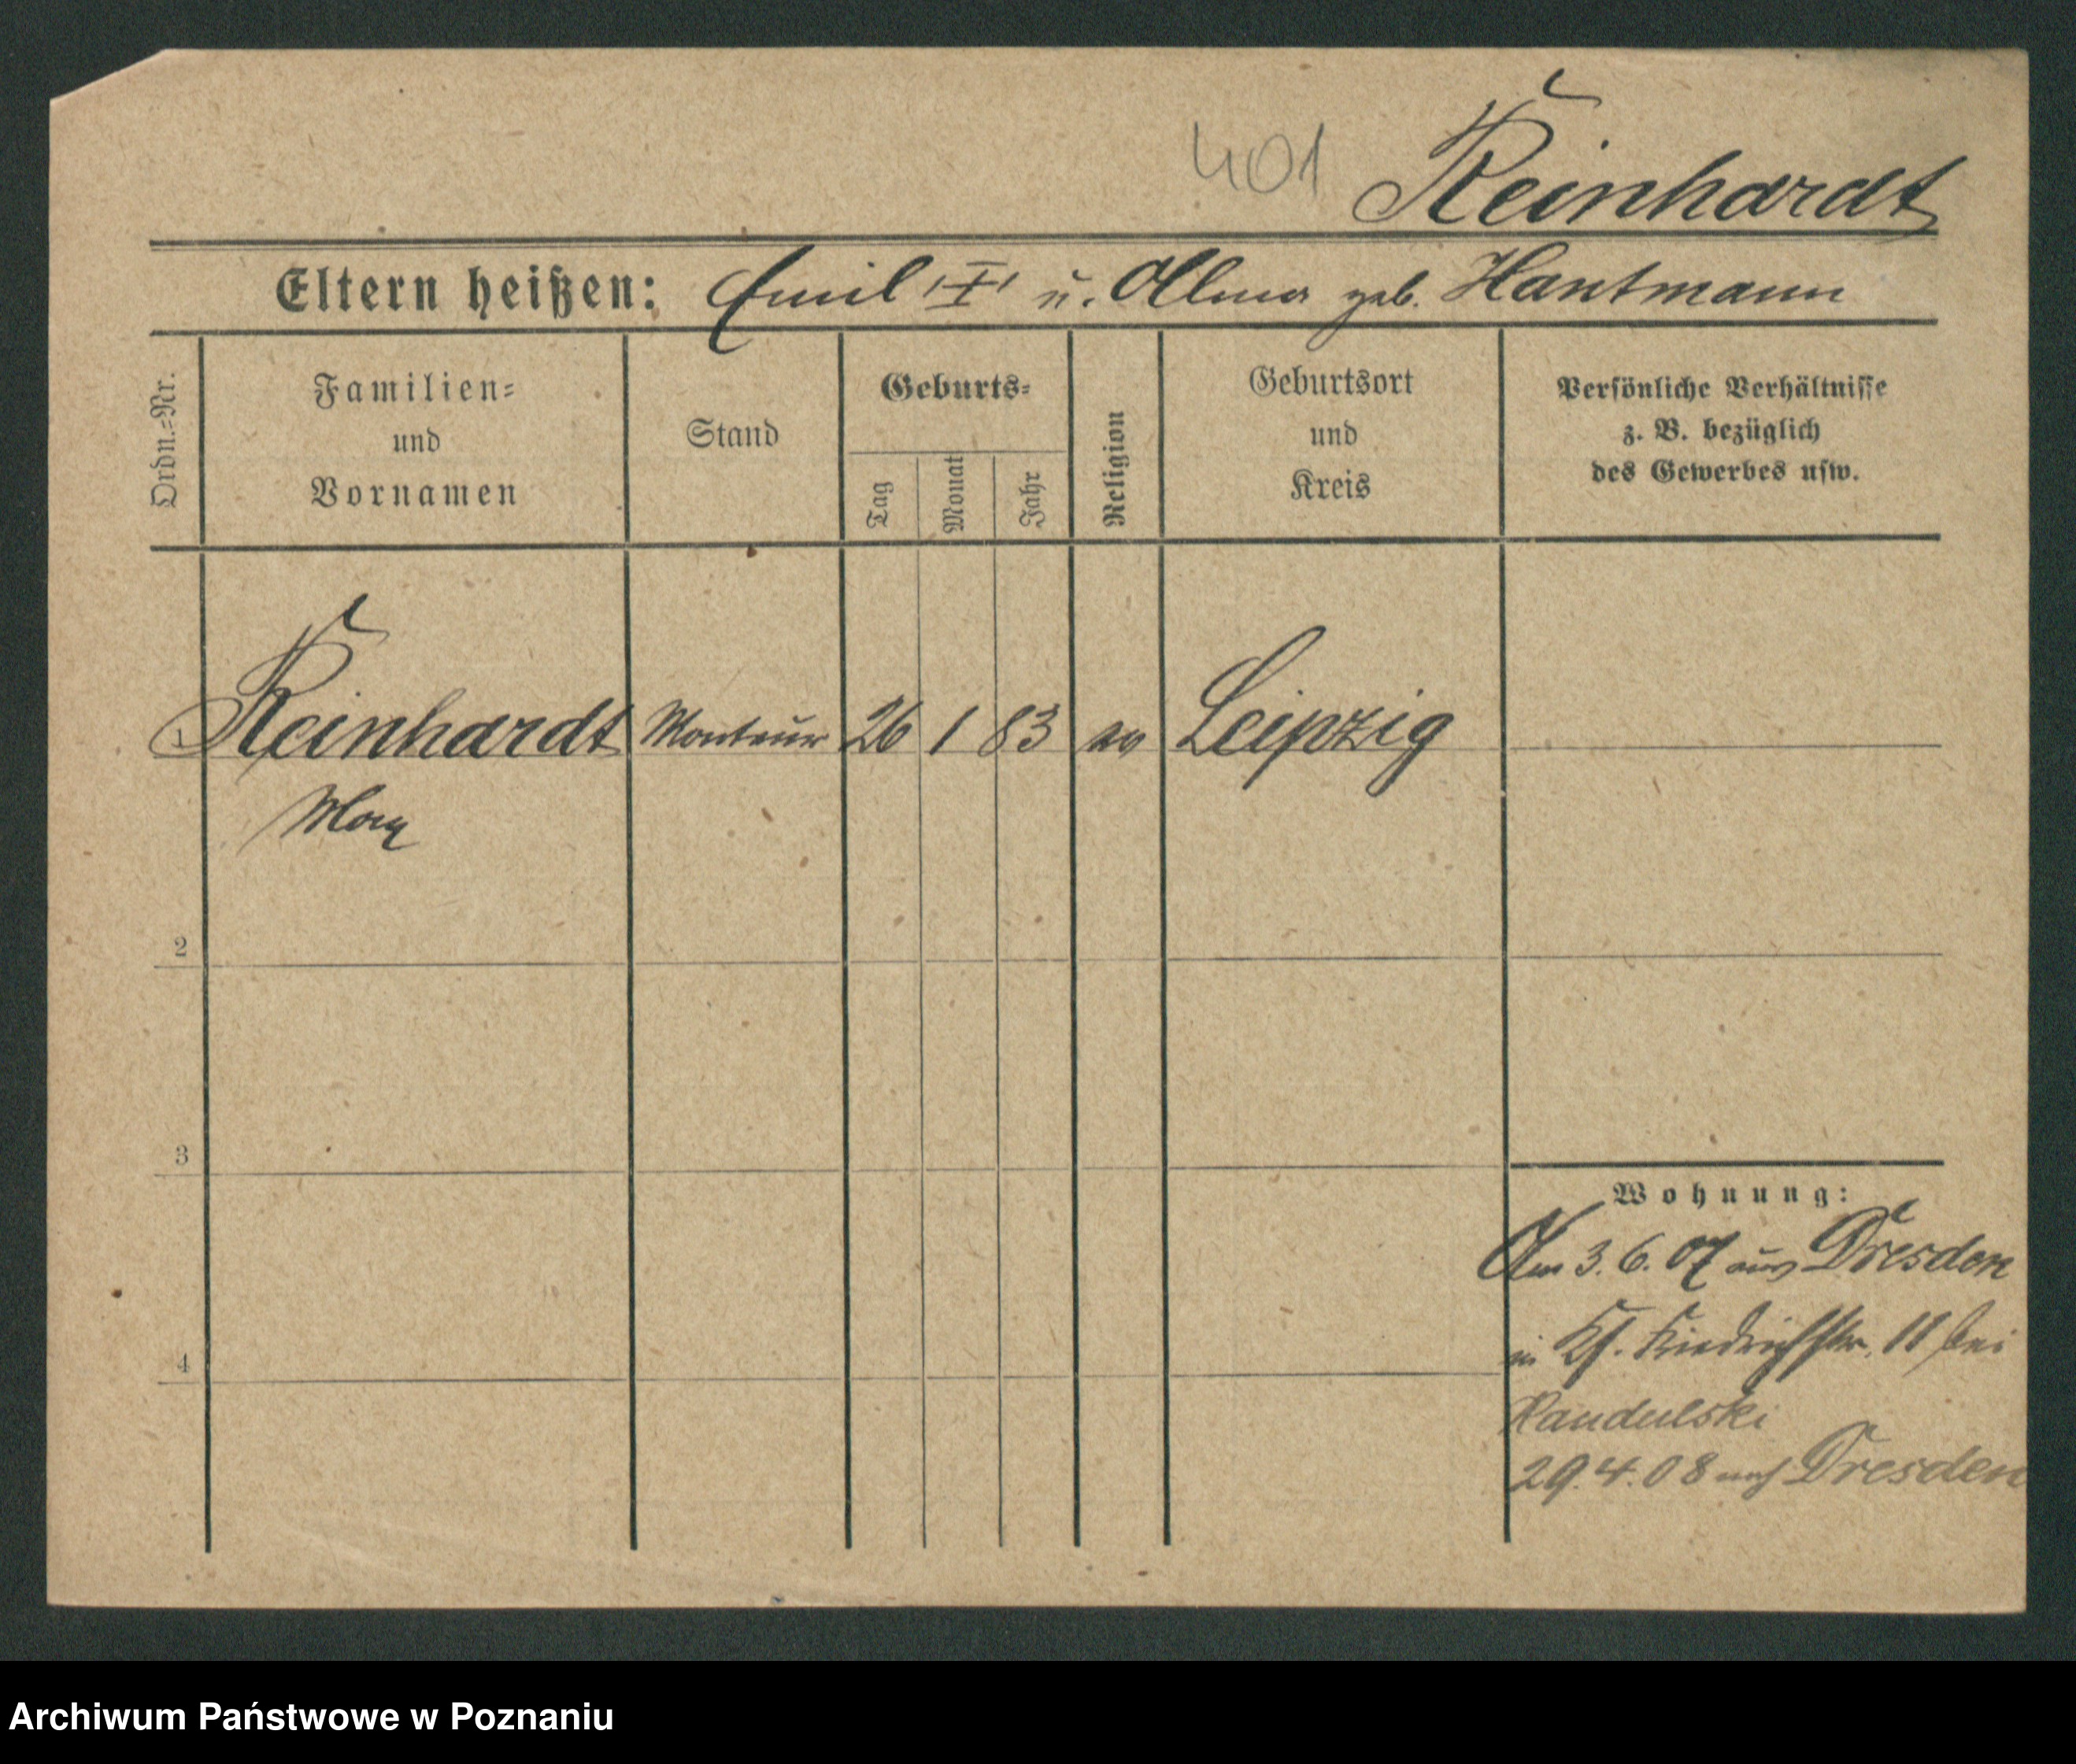 401 Reinhardt
Eltern heißen: Emil I u. Alma geb. Hantmann
Ordn.-Nr.
Familien-
und
Vornamen
Stand
Geburts-
Tag
Monat
Jahr
Religion
Geburtsort
und
Kreis
Persönliche Verhältnisse
z. B. bezüglich
des Gewerbes usw.
1 Reinhardt Monteur 26 1 83 ev Leipzig
Max
2
3
4
Wohnung:
Am 3. 6. 07 aus Dresden
in 11 bei
Randulski
29. 4. 08 nach Dresden
Archiwum Państwowe w Poznaniu